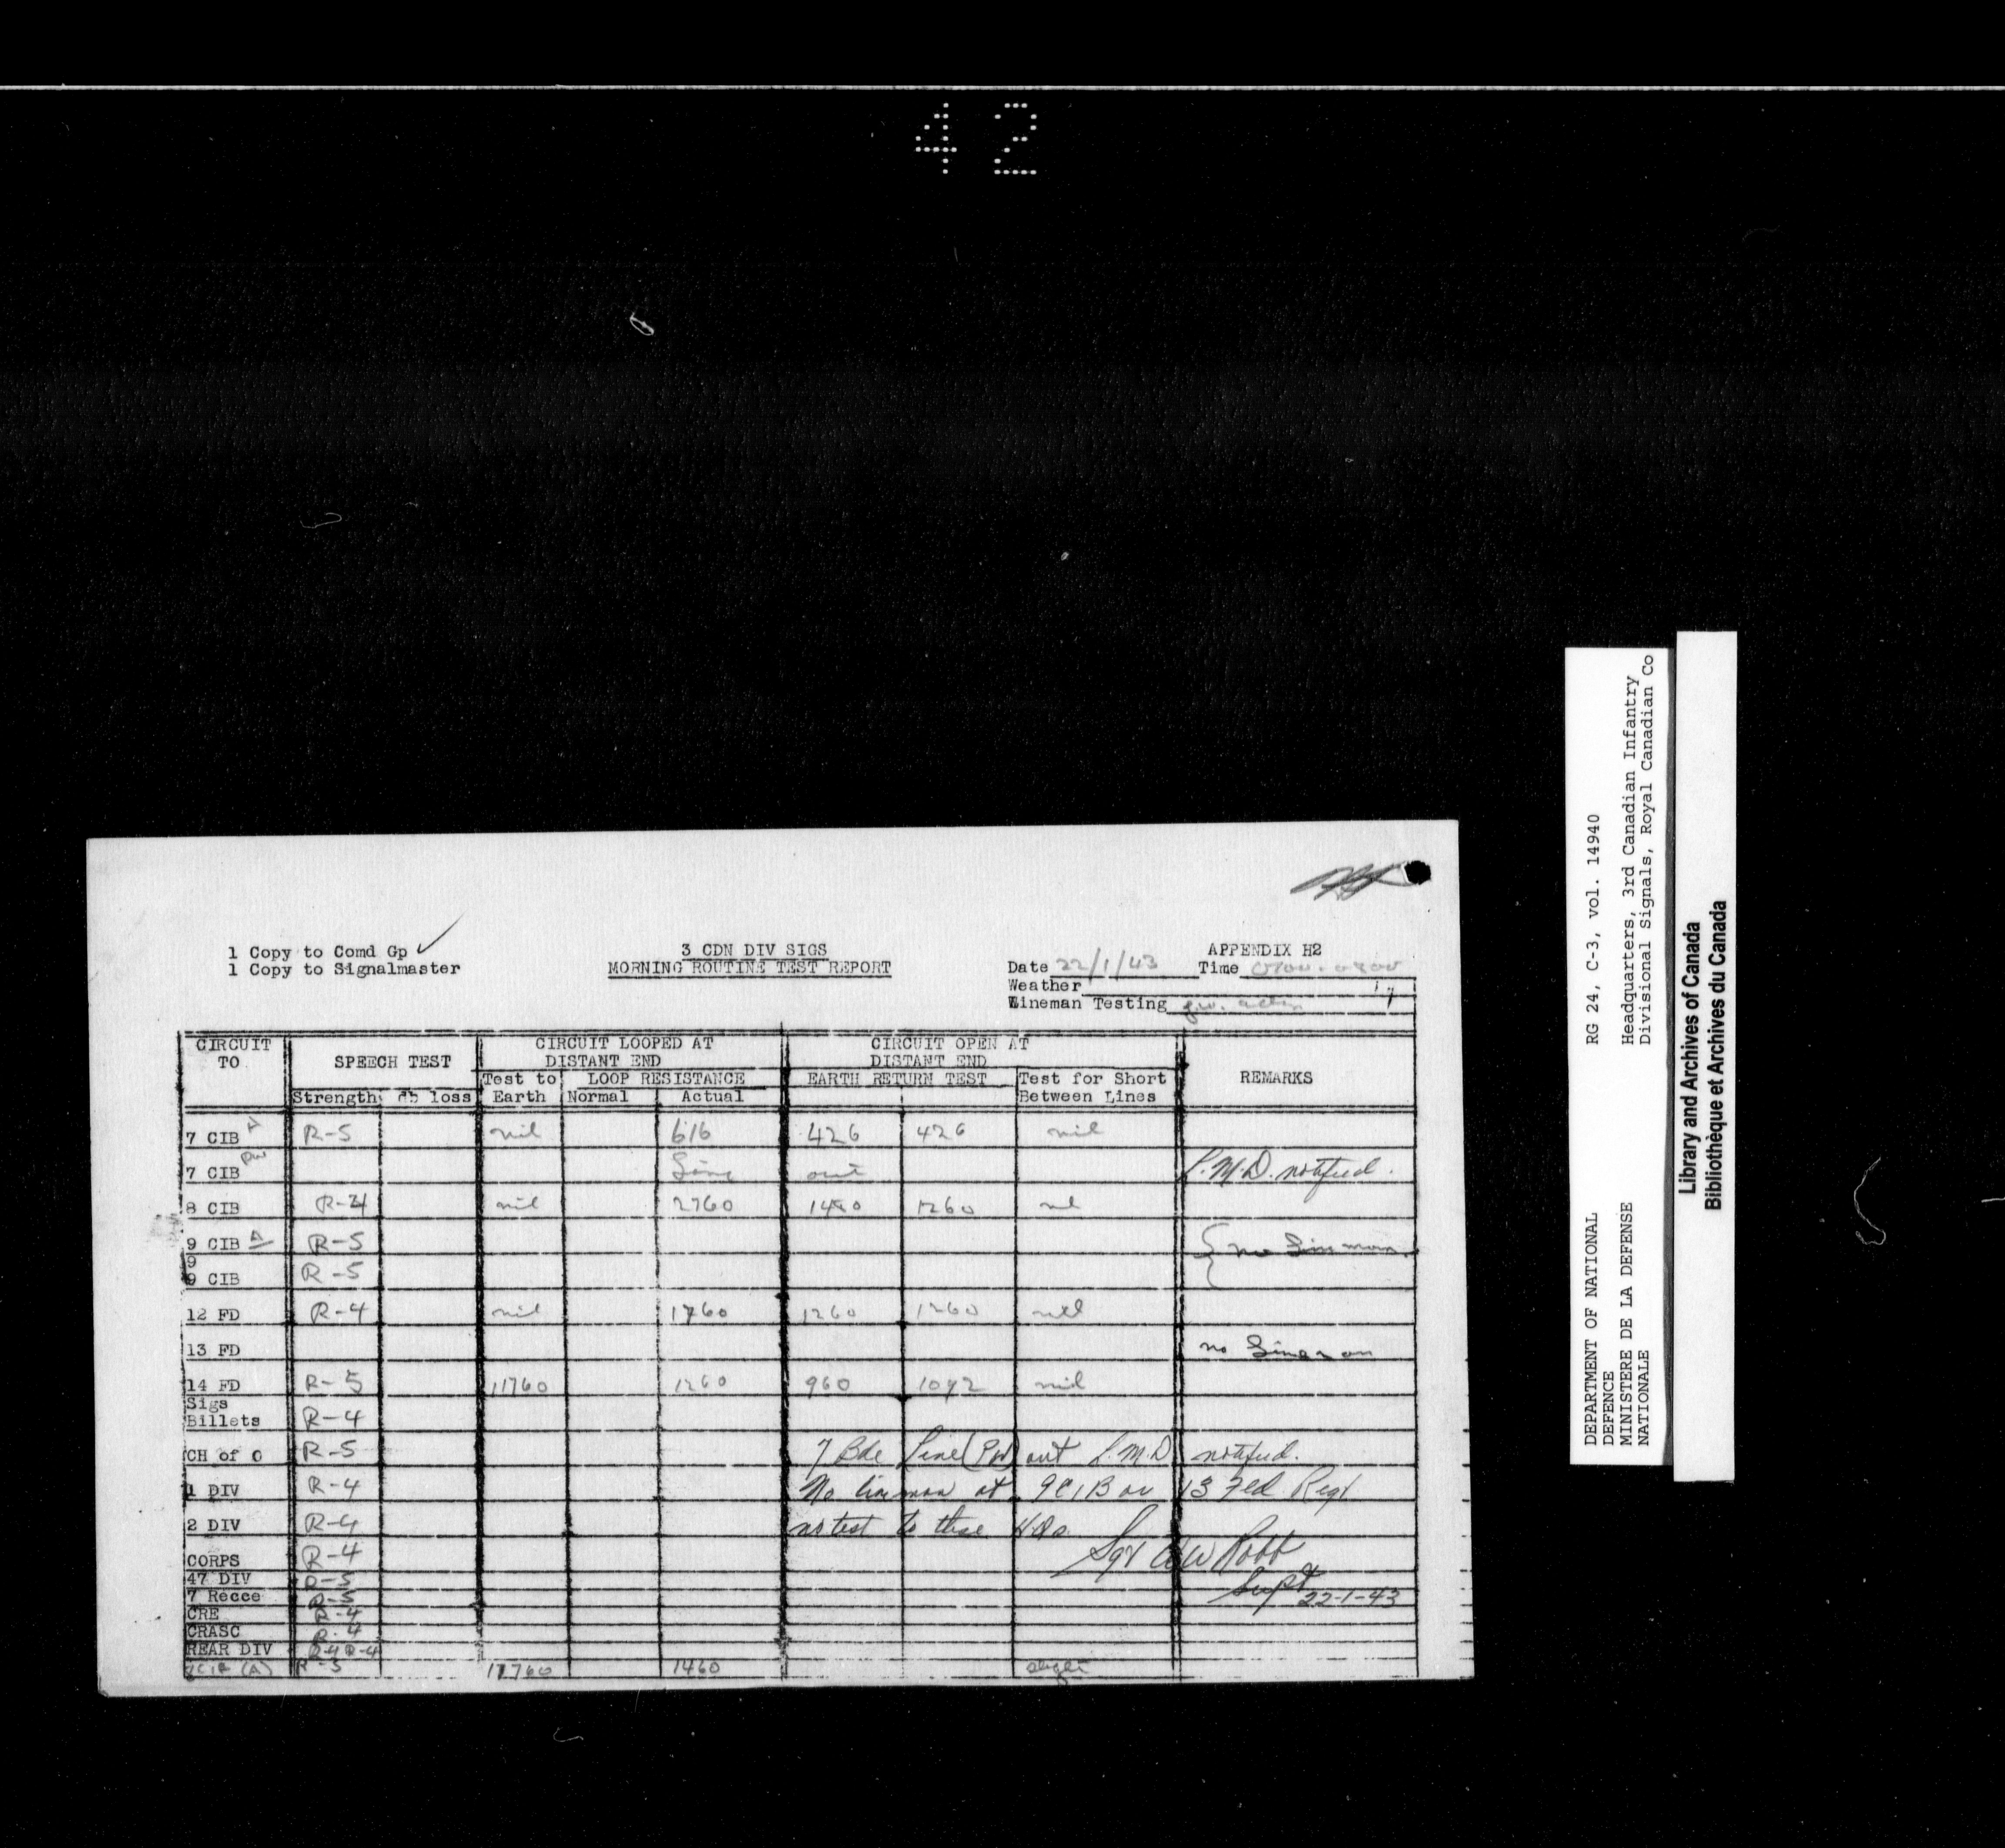 42
1 Copy to Comd Gp ✓
1 Copy to Signalmaster
3 CDN DIV SIGS
MORNING ROUTINE TEST REPORT
APPENDIX H2
Date 22/1/43 Time
Weather
Lineman Testing
CIRCUIT TO
SPEECH TEST
CIRCUIT LOOPED AT DISTANT END
CIRCUIT OPEN AT DISTANT END
REMARKS
Test to Earth
LOOP RESISTANCE
EARTH RETURN TEST
Test for Short Between Lines
Strength db loss Normal Actual
7 CIB A R-5 nil 616 426 426 nil
7 CIB PW Line out L.M.D. notified.
8 CIB R-4 nil 2760 1260
9 CIB A R-5 { no Lineman
9
9 CIB R-5
12 FD R-4 nil 1760 1260 1260 nil
13 FD no Lineman
14 FD R-5 11760 1260 960 1092 nil
Sigs
Billets R-4
CH of O R-5 7 Bde Line (PW) out L.M.D notified.
1 DIV R-4 No lineman at 9CIB or 13 Fld Regt
2 DIV R-4 no test to these HQs.
CORPS R-4 Sgt AW Robb
47 DIV R-5 Supt
7 Recce R-5 22-1-43
CRE R-4
CRASC R-4
REAR DIV R-4 R-4
(A) R-5 11760 1460 slight
RG 24, C-3, vol. 14940
Headquarters, 3rd Canadian Infantry
Divisional Signals, Royal Canadian Co
DEPARTMENT OF NATIONAL
DEFENCE
MINISTERE DE LA DEFENSE
NATIONALE
Library and Archives of Canada
Bibliothèque et Archives du Canada